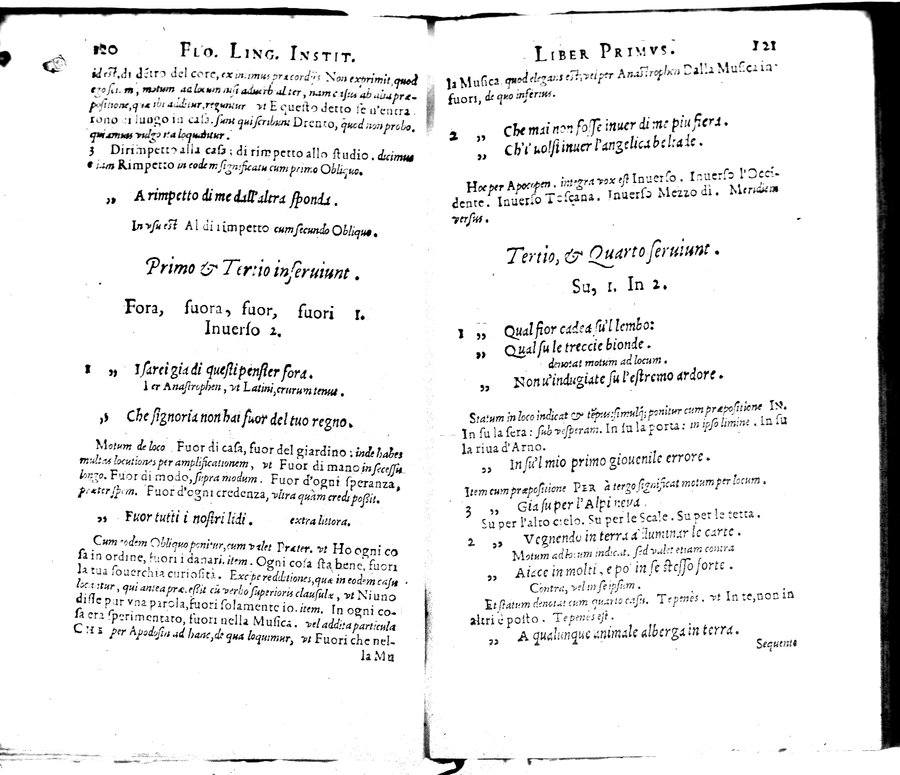 120 FLO. LING. INSTIT.
id est, di dẽtro del core, ex intimus præcordijs Non exprimit, quod
positione, quæ ibi additur, reguntur vt E questo detto se n'entra
rono di lungo in casa. sunt qui scribunt Drento, quod non probo.
quiamus vulgo ita loquatur.
3 Dirimpetto alla casa; di rimpetto allo studio. dicimus
etiam Rimpetto in eodem significatu cum primo Obliquo.
„ A rimpetto di me dall'altra sponda.
In vsu est Al di rimpetto cum secundo Obliquo.
Primo & Tertio inseruiunt.
Fora, fuora, fuor, fuori 1.
Inuerso 2.
1 „ I sarei gia di questi pensier fora.
Per Anastrophen, vt Latini, crurum tenus.
„ Che signoria non hai fuor del tuo regno.
Motum de loco Fuor di casa, fuor del giardino: inde habes
multas locutiones per amplificationem, vt Fuor di mano in secessu
longo. Fuor di modo, supra modum. Fuor d'ogni speranza,
præter spem. Fuor d'ogni credenza, vltra quàm credi possit.
„ Fuor tutti i nostri lidi. extra littora.
Cum eodem Obliquo ponitur, cum valet Præter. vt Ho ogni co
sa in ordine, fuori i danari. item. Ogni cosa sta bene, fuori
la tua souerchia curiosità. Excipe redditiones, quæ in eodem casu
locantur, qui antea præest cũ verbo superioris clausulæ, vt Niuno
disse pur vna parola, fuori solamente io. item. In ogni co-
sa era sperimentato, fuori nella Musica. vel addita particula
CHE per Apodosin ad hanc, de qua loquimur, vt Fuori che nel-
la Mu
LIBER PRIMVS. 121
la Musica. quod elegans est, vel per Anastrophen Dalla Musica in-
fuori, de quo inferius.
2 „ Che mai non fosse inuer di me piu fiera.
„ Ch'i uolsi inuer l'angelica beltade.
Hoc per Apocopen. integra vox est Inuerso. Inuerso l'Occi-
dente. Inuerso Toscana. Inuerso Mezzo di. Meridiem
versus.
Tertio, & Quarto seruiunt.
Su, 1. In 2.
1 „ Qual fior cadea su'l lembo:
„ Qual su le treccie bionde.
denotat motum ad locum.
„ Non u'indugiate su l'estremo ardore.
Statum in loco indicat & tẽpus: simulq; ponitur cum præpositione IN.
In su la sera: sub vesperam. In su la porta: in ipso limine. In su
la riua d'Arno.
„ In su'l mio primo giouenile errore.
Item cum præpositione PER à tergo significat motum per locum.
3 „ Gia su per l'Alpi neua.
Su per l'alto cielo. Su per le Scale. Su per le tetta.
2 „ Vegnendo in terra a'lluminar le carte.
Motum ad locum indicat. sed valet etiam contra
„ Aiace in molti, e po' in se stesso forte.
Contra, vel in se ipsum.
Et statum denotat cum quarto casu. Te penès. vt In te, non in
altri è posto. Te penès est.
„ A qualunque animale alberga in terra.
Sequente